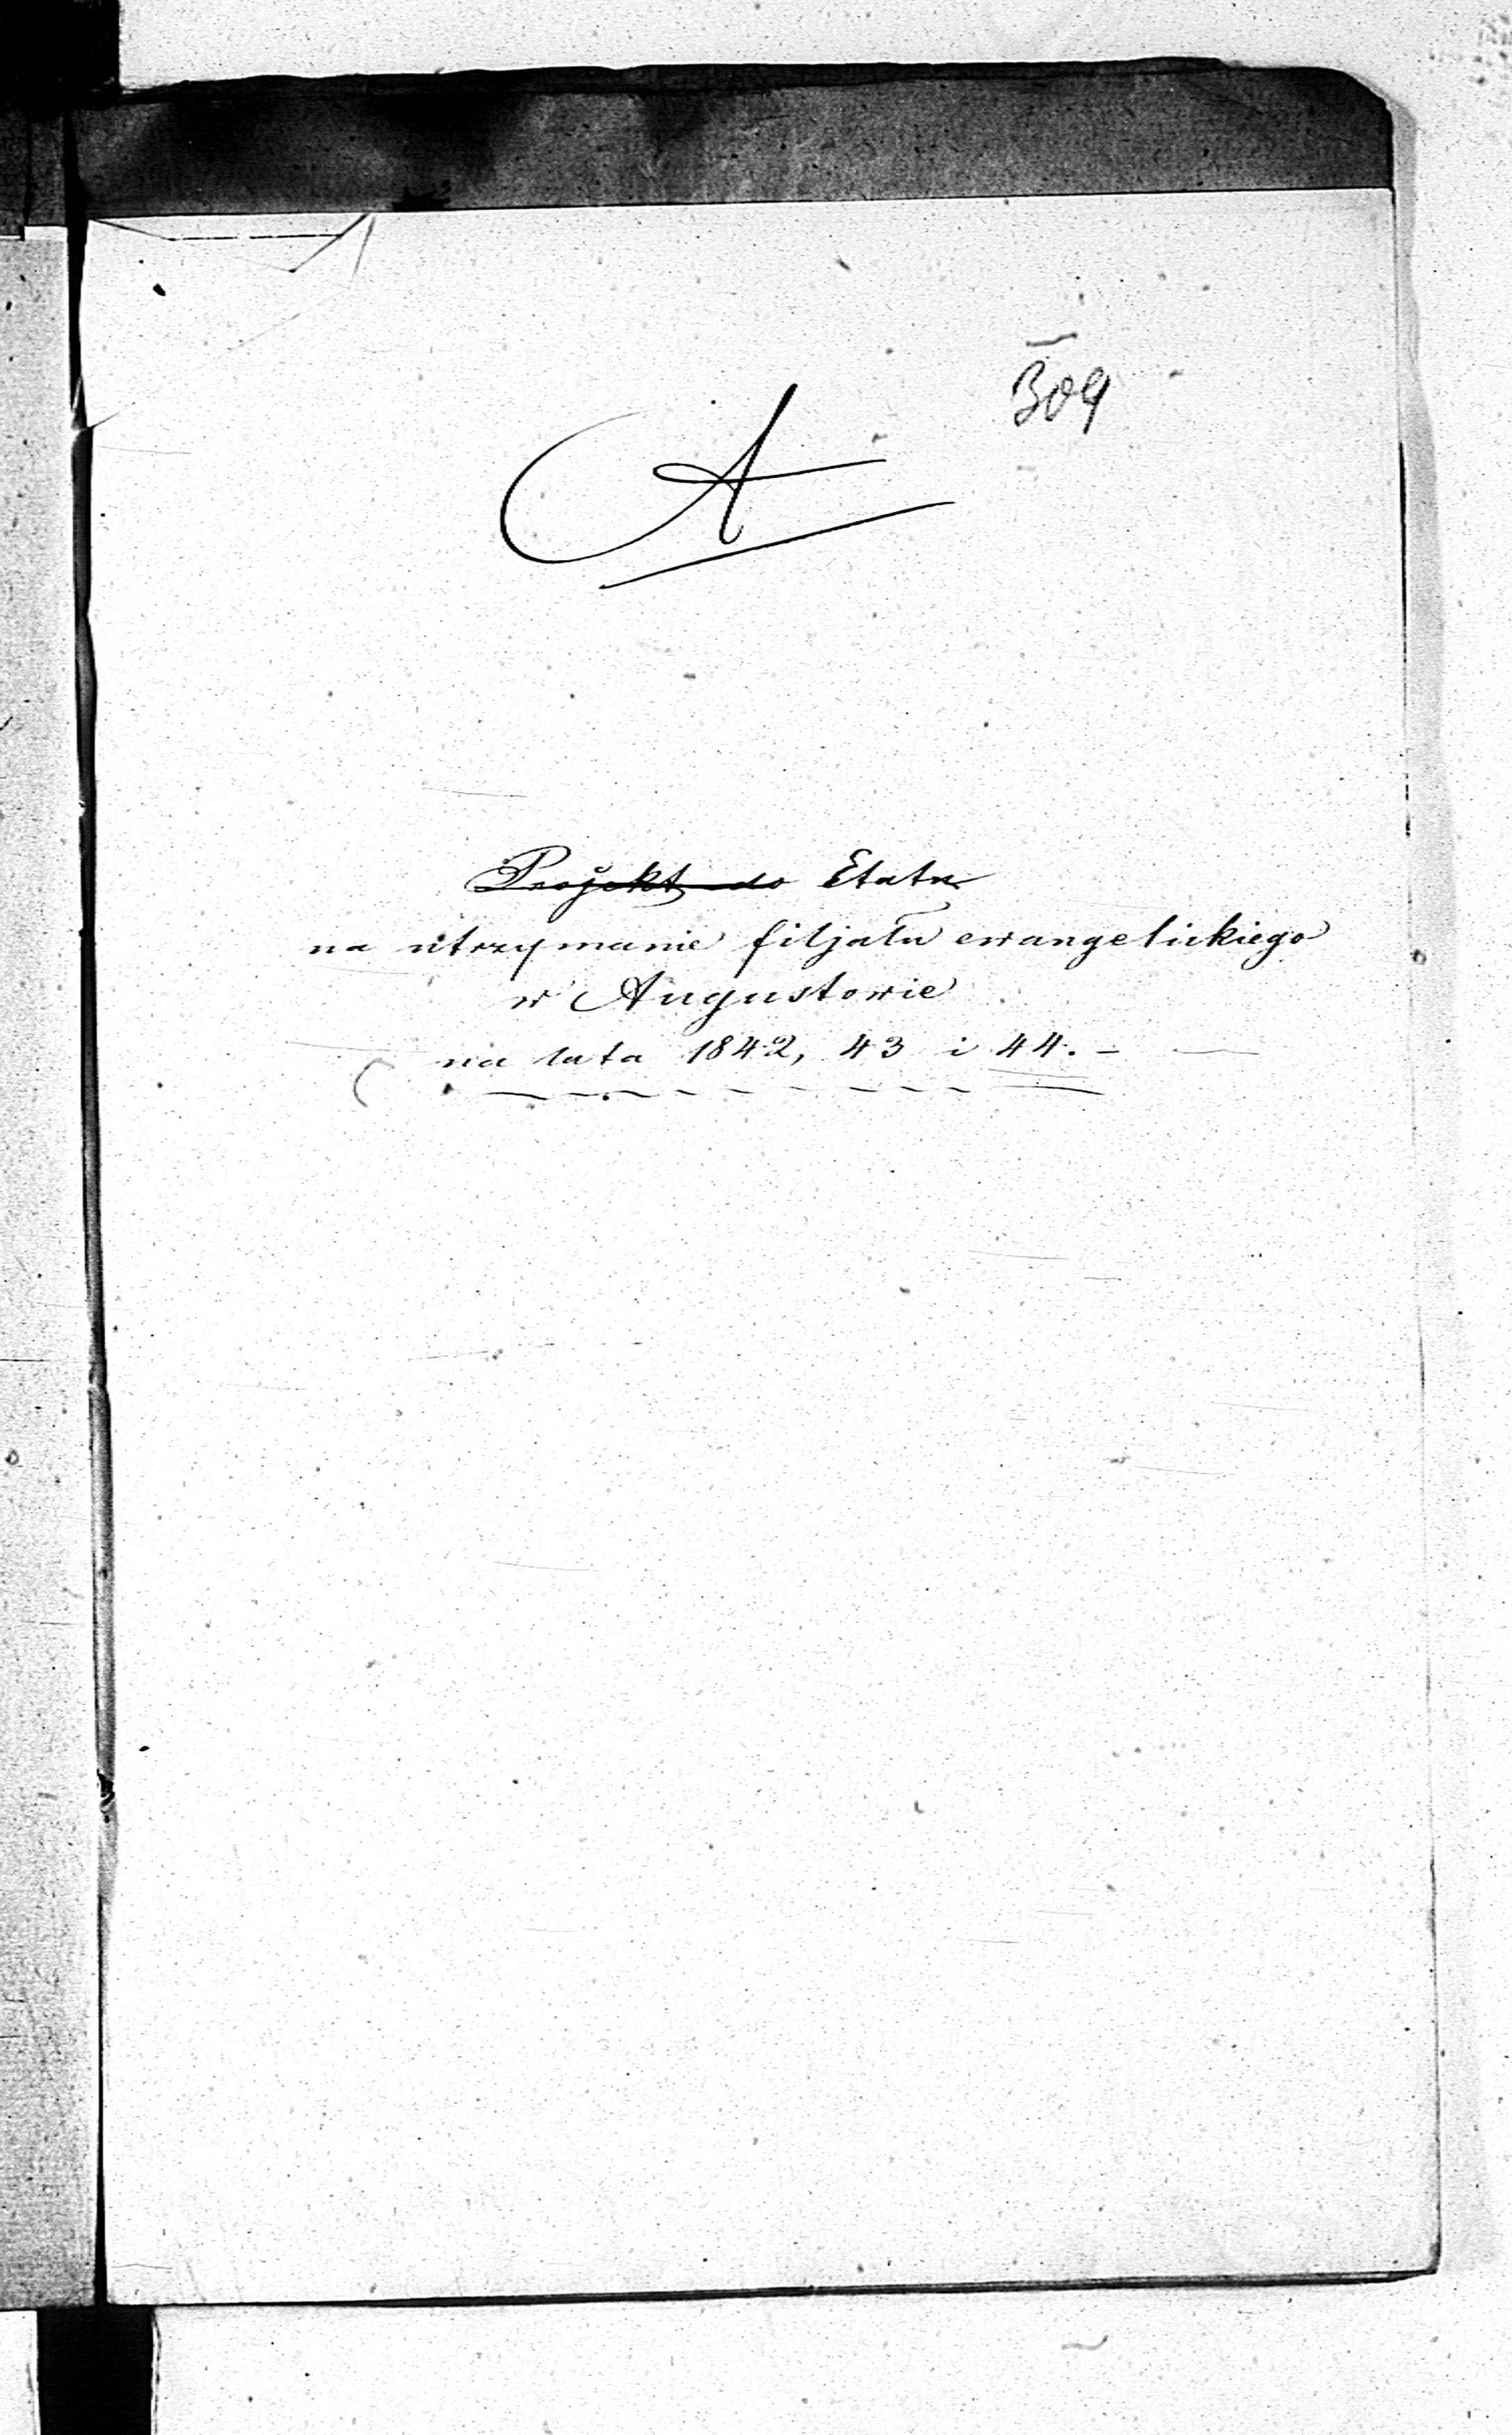 309
A
Projekt do Etatu
na utrzymanie filjału ewangelickiego
w Augustowie
na lata 1842, 43 i 44. -